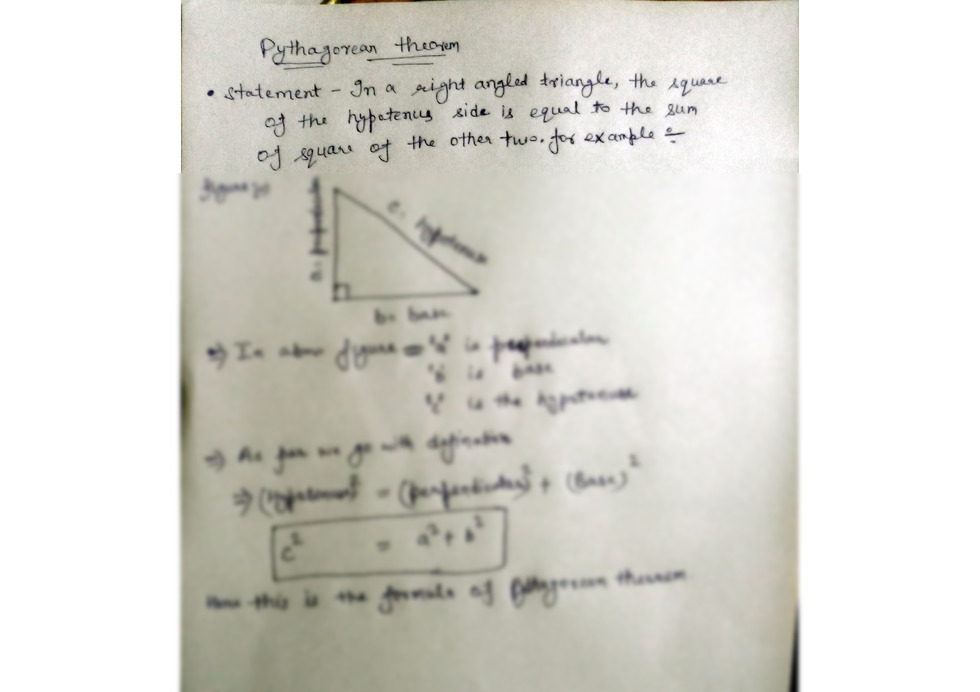 Pythagorean theorem
• Statement - In a right angled triangle, the square
of the hypotenus side is equal to the sum
of square of the other two. for example :-
c = hypotenuse
b = base
⇒ In above figure = "a" is perpendicular
"b" is base
"c" is the hypotenuse
⇒ As per we go with defination
⇒ (Hypotenus)² = (perpendicular)² + (Base)²
c² = a² + b²
this is the formula of Pythagorean theorem.